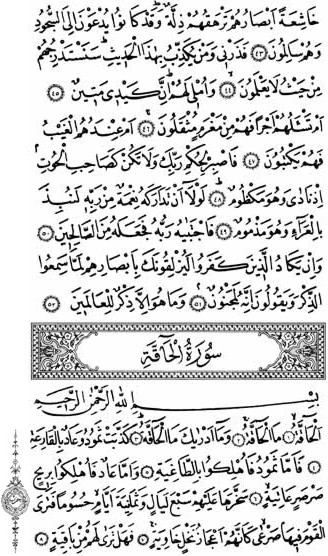 خَاشِعَةً اَبْصَارُهُمْ تَرْهَقُهُمْ ذِلَّةٌ وَقَدْ كَانُوا يُدْعَوْنَ اِلَى السُّجُودِ
وَهُمْ سَالِمُونَ ﴿٤٣﴾ فَذَرْنِي وَمَنْ يُكَذِّبُ بِهٰذَا الْحَدِيثِ سَنَسْتَدْرِجُهُمْ
مِنْ حَيْثُ لَا يَعْلَمُونَ ﴿٤٤﴾ وَاُمْلِي لَهُمْ اِنَّ كَيْدِي مَتِينٌ ﴿٤٥﴾
اَمْ تَسْـَٔلُهُمْ اَجْرًا فَهُمْ مِنْ مَغْرَمٍ مُثْقَلُونَ ﴿٤٦﴾ اَمْ عِنْدَهُمُ الْغَيْبُ
فَهُمْ يَكْتُبُونَ ﴿٤٧﴾ فَاصْبِرْ لِحُكْمِ رَبِّكَ وَلَا تَكُنْ كَصَاحِبِ الْحُوتِ
اِذْ نَادٰى وَهُوَ مَكْظُومٌ ﴿٤٨﴾ لَوْلَا اَنْ تَدَارَكَهُ نِعْمَةٌ مِنْ رَبِّهِ لَنُبِذَ
بِالْعَرَاءِ وَهُوَ مَذْمُومٌ ﴿٤٩﴾ فَاجْتَبٰيهُ رَبُّهُ فَجَعَلَهُ مِنَ الصَّالِحِينَ ﴿٥٠﴾
وَاِنْ يَكَادُ الَّذِينَ كَفَرُوا لَيُزْلِقُونَكَ بِاَبْصَارِهِمْ لَمَّا سَمِعُوا
الذِّكْرَ وَيَقُولُونَ اِنَّهُ لَمَجْنُونٌ ﴿٥١﴾ وَمَا هُوَ اِلَّا ذِكْرٌ لِلْعَالَمِينَ ﴿٥٢﴾
سُورَةُ الْحَاقَّةِ
بِسْمِ اللّٰهِ الرَّحْمٰنِ الرَّحِيمِ
اَلْحَاقَّةُ ﴿١﴾ مَا الْحَاقَّةُ ﴿٢﴾ وَمَا اَدْرٰيكَ مَا الْحَاقَّةُ ﴿٣﴾ كَذَّبَتْ ثَمُودُ وَعَادٌ بِالْقَارِعَةِ
﴿٤﴾ فَاَمَّا ثَمُودُ فَاُهْلِكُوا بِالطَّاغِيَةِ ﴿٥﴾ وَاَمَّا عَادٌ فَاُهْلِكُوا بِرِيحٍ
صَرْصَرٍ عَاتِيَةٍ ﴿٦﴾ سَخَّرَهَا عَلَيْهِمْ سَبْعَ لَيَالٍ وَثَمَانِيَةَ اَيَّامٍ حُسُومًا فَتَرَى
الْقَوْمَ فِيهَا صَرْعٰى كَاَنَّهُمْ اَعْجَازُ نَخْلٍ خَاوِيَةٍ ﴿٧﴾ فَهَلْ تَرٰى لَهُمْ مِنْ بَاقِيَةٍ ﴿٨﴾